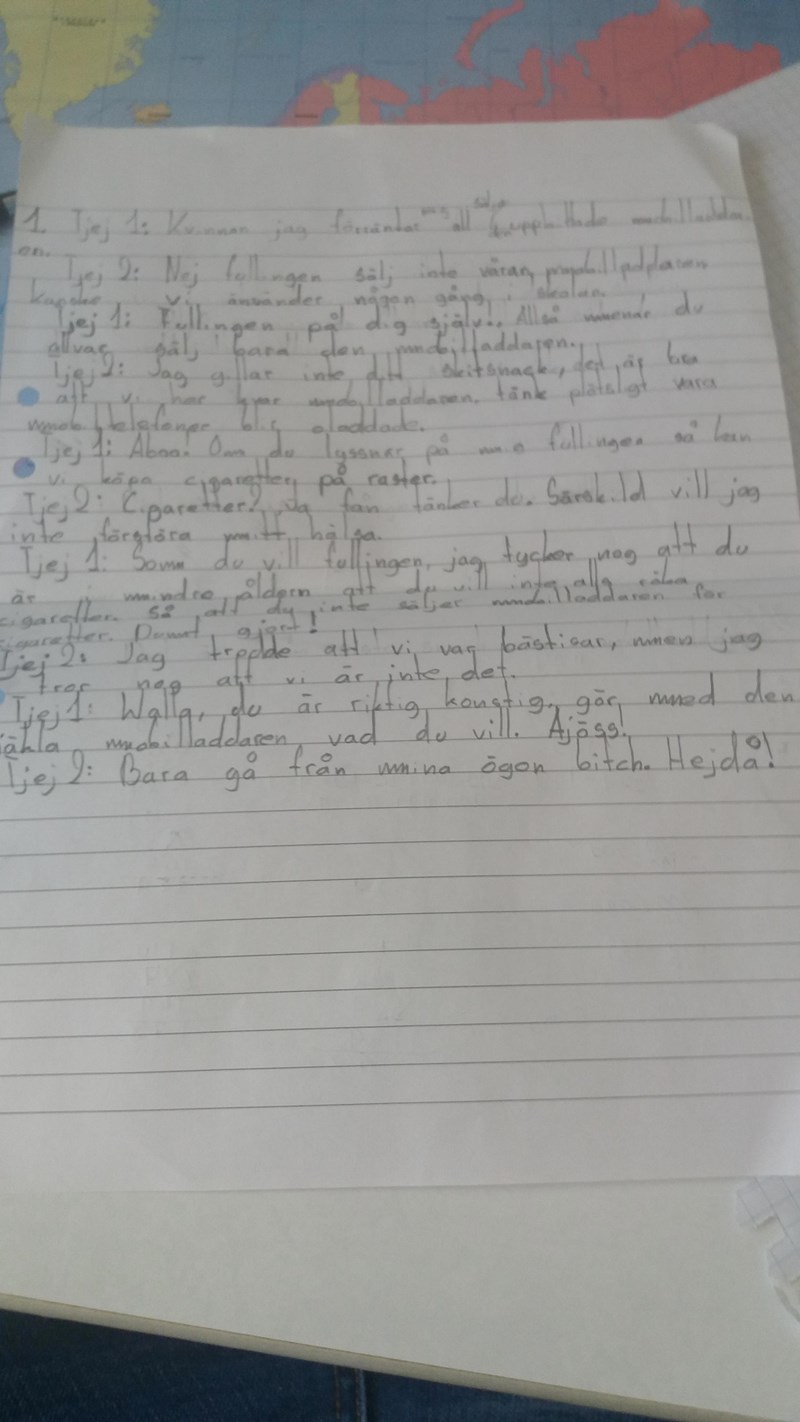 1. Tjej 1: Kvinnan jag förväntar mig att sälja
en.
Tjej 2: Nej fullingen sälj inte våran mobilladdaren
kanske vi använder någon gång i skolan.
Tjej 1: Fullingen på dig själv! Allså menar du
allvar sälj bara den mobilladdaren.
Tjej 2: Jag gillar inte ditt skitsnack, det är bra
att vi har kvar mobilladdaren, tänk plötsligt vara
mobiltelefoner blir oladdade.
Tjej 1: Aboo! Om du lyssnar på mig fullingen så kan
vi köpa cigaretter på raster.
Tjej 2: Cigaretter? Va fan tänker du. Särskild vill jag
inte förgöra mitt hälsa.
Tjej 1: Som du vill fullingen, jag tycker nog att du
är i mindre åldern att du vill inte alls röka
cigaretter. Så att du inte säljer mobilladdaren för
cigaretter. Dumt gjort!
Tjej 2: Jag trodde att vi var bästisar, men jag
tror nog att vi är inte det.
Tjej 1: Walla, du är riktig konstig, gör med den
jähla mobilladdaren vad du vill. Ajöss!
Tjej 2: Bara gå från mina ögon bitch. Hejdå!